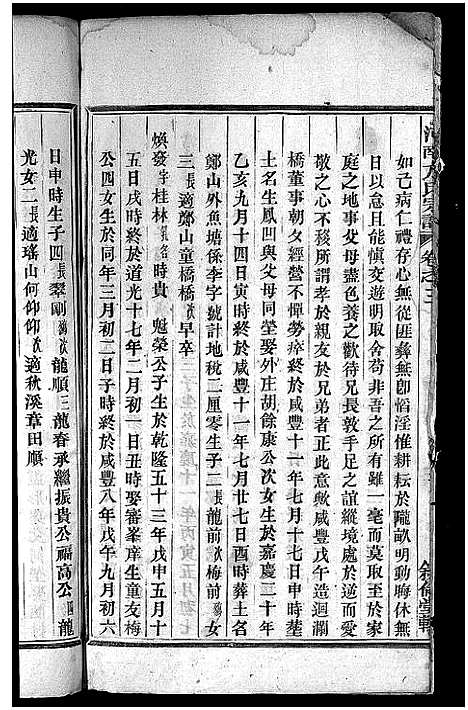 如己病仁禮存心無從匪彝無卽慆淫惟耕耘於隴畝明動晦休無
日以怠且能愼交遊明取舍苟非吾之所有雖一毫而莫取至於家
庭之地事父母盡色養之歡待兄長敦手足之誼縱境處於逆而愛
敬之心不移所謂孝於親友於兄弟者正此意歟咸豐戊午造迴瀾
橋董事朝夕經營不憚勞瘁終於咸豐十一年七月十七日申時葬
土名生鳳凹與父母同塋娶外庄胡餘康公次女生於嘉慶二十年
乙亥九月十四日寅時終於咸豐十一年七月廿七日酉時葬土名
鄭山外魚塘係李字號計地稅二厘零生子二張龍前次梅前女
三長適鄭山童橋橋次早卒
煥發字桂林 時貴 魁榮公子生於乾隆五十三年戊申五月十
五日戌時終於道光十七年二月初一日丑時娶審峯庠生童友梅
公四女生於同年三月初二日子時終於咸豐八年戊午九月初六
日申時生子四長翠剛次龍順三龍春承繼振貴公福高公四龍
光女二長適瑤山何仰仰次適秋溪章田順
河南方氏宗譜 卷之三
敘倫堂